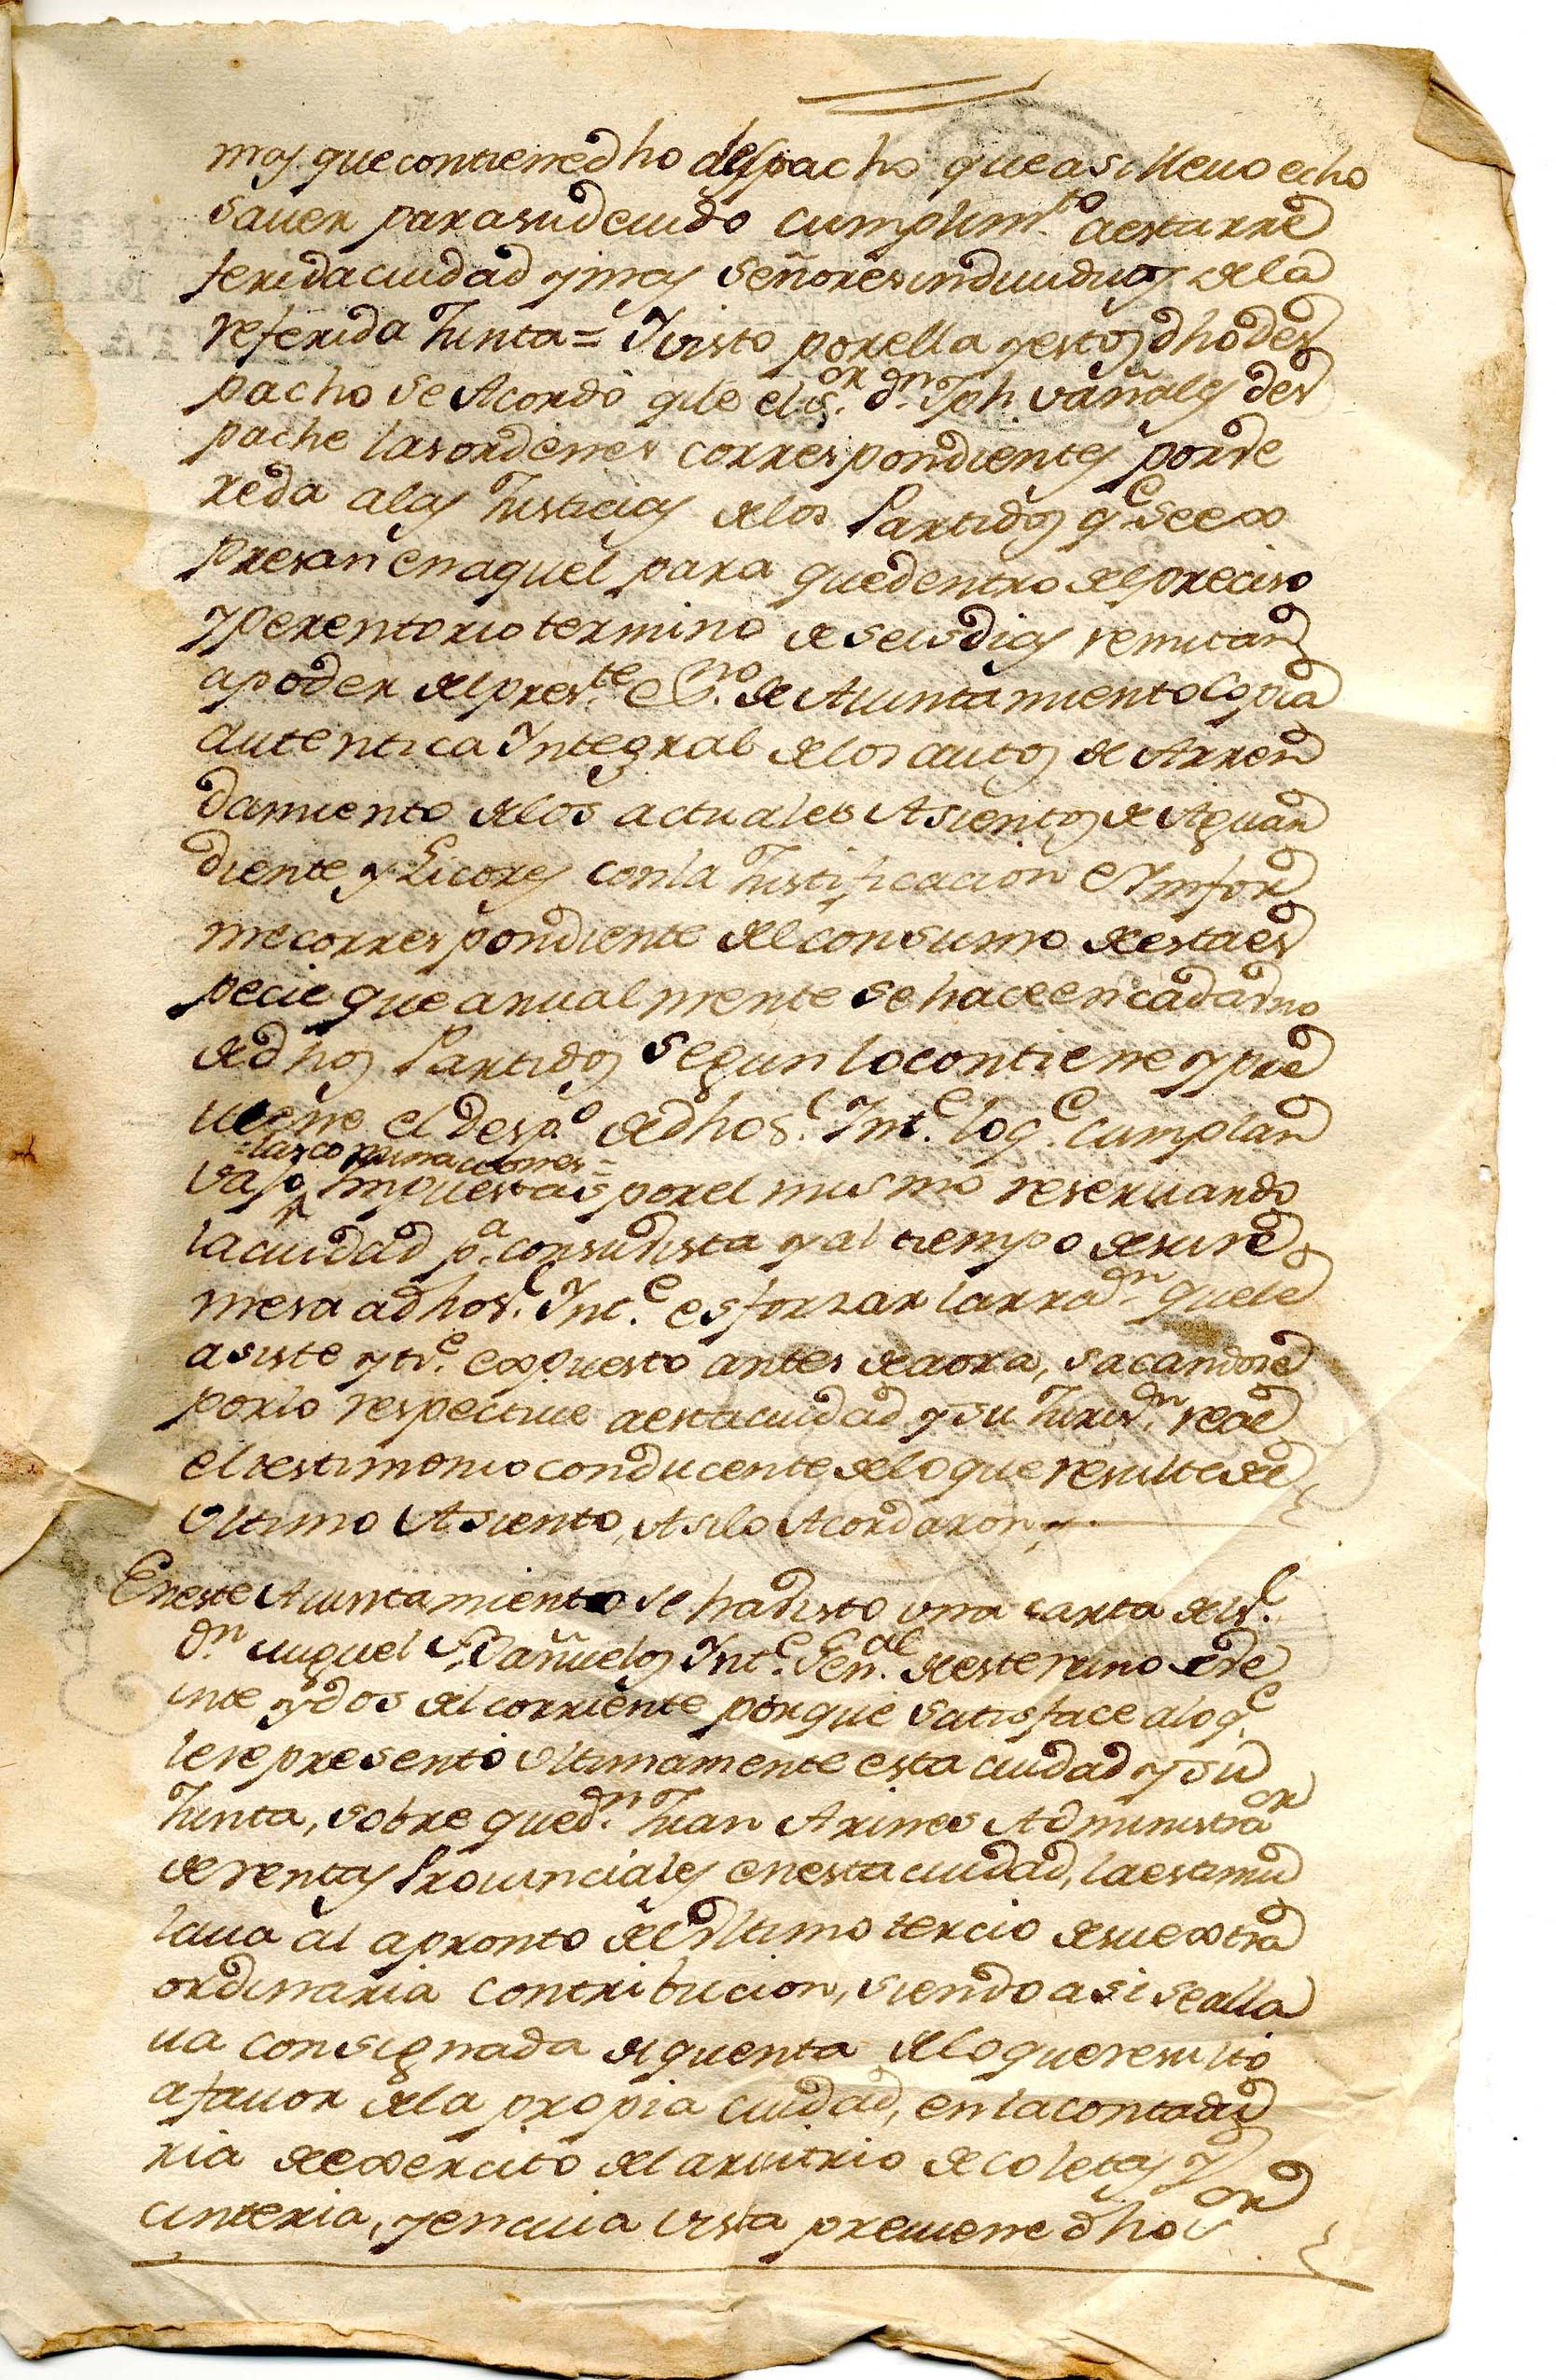 mas que contiene dho despacho que asi lleuo echo
sauer para su deuido cumplim.to a esta rre
ferida ciudad y mas señores induiduos de la
referida Junta = Y visto por ella y estos dho des
pacho se Acordó que el s.or d.n Jph. vañales des
pache las ordenes correspondientes por ve
reda a las Justicias de los Partidos q.e se ex
presan en aquel para que dentro del preciso
y perentorio termino de seis dias remitan
a poder del pres.te es.no de Aiuntamiento Copia
autentica Integral de los autos de Arren
damiento de los actuales Asientos de Aguar
diente y Licores con la Justificacion e Ynfor
me correspondiente del consumo de esta es
pecie que anualmente se hace en cada vno
de dhos Partidos segun lo contiene y pre
uiene el Desp.o de dho s.r Int.e lo q.e cumplan
= las conminaciones =
vajo impuestas por el mismo reseruando
la ciudad p.a con su vista y al tiempo de su re
mesa a dho s.r Int.e esforzar la rra.on que le
asiste y ti.e expuesto antes de aora, sacandose
por lo respectiue a esta ciudad y su Juris.on real
el testimonio conducente de lo que resulte del
vltimo Asiento, Asi lo Acordaron y.
En este Aiuntamiento se ha visto vna carta del s.r
d.n Miguel Vañuelos Int.e Gen.al de este reino de ve
inte y dos del corriente por que satisface a lo q.e
le representó vltimamente esta ciudad y su
Junta, sobre que d.n Juan Arines Administra.or
de rentas Prouinciales en esta ciudad, la estimu
laua al apronto del vltimo tercio de su extra
ordinaria contribucion, siendo asi se alla
ua consignada de quenta de lo que resultó
a fauor de la propia ciudad, en la contadu
ria de exercito del aruitrio de coletas y
cinteria, y en cuia vista preuiene dho s.or